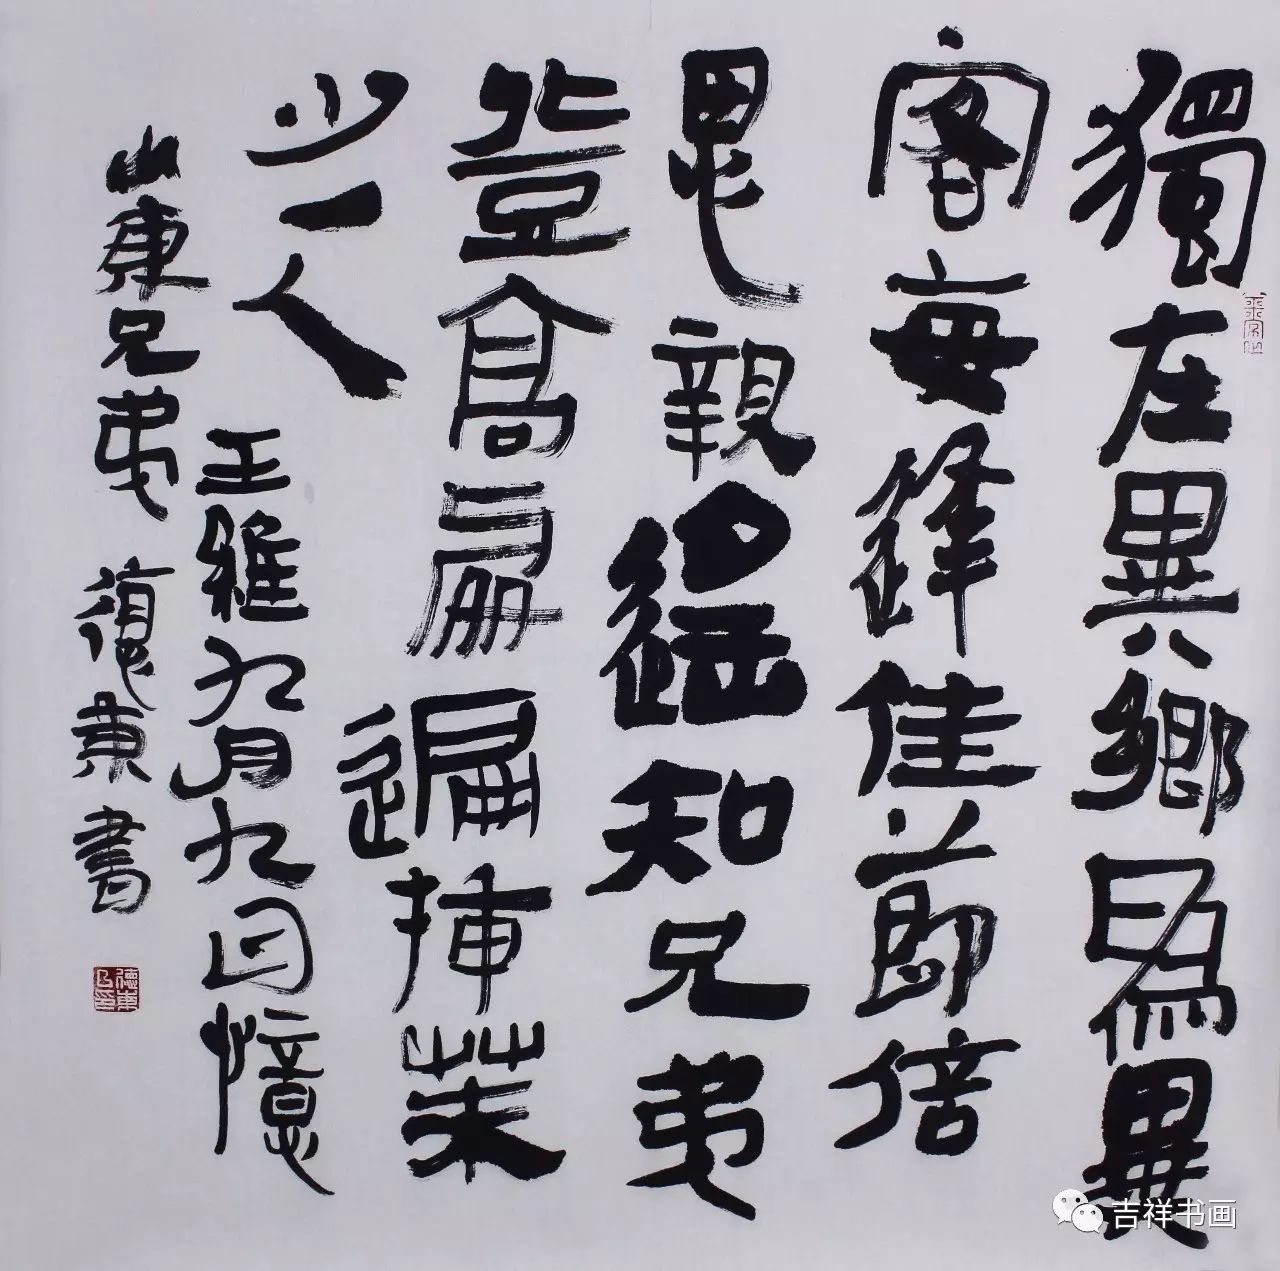 獨在異鄉爲異
客每鋒佳節倍
思親遥知兄弟
登高處遍插茱
少一人
王維九月九日憶
山東兄弟 德東書
德東之印
吉祥书画